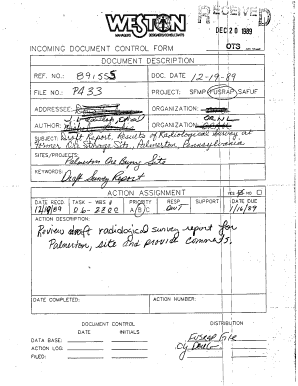 WESTON
MANAGERS DESIGNERS/CONSULTANTS
RECEIVED
DEC 20 1989
INCOMING DOCUMENT CONTROL FORM
OTS
DOCUMENT DESCRIPTION
REF. NO.: 89:555
DOC. DATE 12-19-89
FILE NO.: PA33
PROJECT: SFMP FUSRAP SAFUF
ADDRESSEE:
ORGANIZATION:
AUTHOR:
ORGANIZATION:
SUBJECT: Draft Report, Results of Radiological Survey at
Former Ore Storage Site, Palmerton, Pennsylvania
SITES/PROJECT:
Palmerton Ore Buying Site
KEYWORDS:
Draft Survey Report
ACTION ASSIGNMENT
YES NO
DATE RECD. TASK - WBS # PRIORITY RESP. SUPPORT DATE DUE
12/19/89 A B C 1/16/89
ACTION DESCRIPTION:
Review draft radiological survey report for
Palmerton, site and provide comments.
DATE COMPLETED: ACTION NUMBER:
DOCUMENT CONTROL
DISTRIBUTION
DATE INITIALS
Fusrap File
DATA BASE:
ACTION LOG:
FILED: